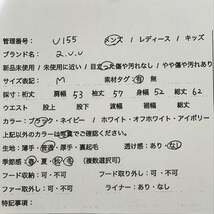 管理番号 U155 メンズ / レディース / キッズ
ブランド名 2.U.U
新品未使用 / 未使用に近い / 目立った傷や汚れなし / やや傷や汚れあり
サイズ表記 M 素材タグ 有・無
採寸:裄丈 肩幅 53 袖丈 57 身幅 52 総丈 62
ウエスト 股上 股下 渡幅 裾幅 総丈
カラー:ブラック・ネイビー / ホワイト・オフホワイト・アイボリー
上記以外のカラー
生地感:薄手・普通・厚手・裏起毛 透け感:あり・なし
季節感:春・夏・秋・冬 (複数選択可)
フード収納:可・不可 フード取り外し:可・不可
ファー取り外し:可・不可 ライナー:あり・なし
特記事項: